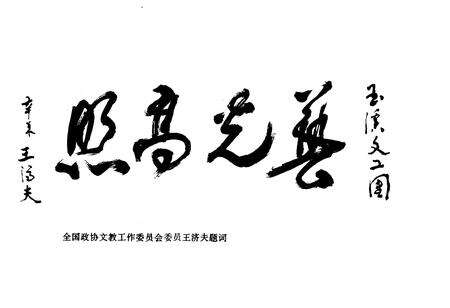 玉溪文工团
藝光高照
辛未 王济夫
全国政协文教工作委员会委员王济夫题词